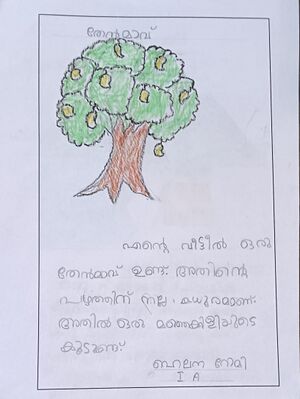 തേൻമാവ്
എന്റെ വീട്ടിൽ ഒരു
തേൻമാവ് ഉണ്ട്. അതിന്റെ
പഴത്തിന് നല്ല മധുരമാണ്.
അതിൽ ഒരു മഞ്ഞക്കിളിയുടെ
കൂടുണ്ട്.
നേമി
I A